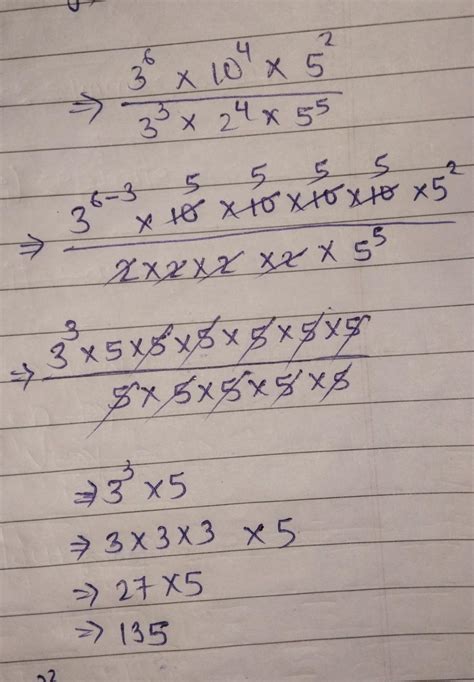 ⇒ 3^6 × 10^4 × 5^2
3^3 × 2^4 × 5^5
5 5 5 5
⇒ 3^6-3 × 10 × 10 × 10 × 10 × 5^2
2 × 2 × 2 × 2 × 5^5
⇒ 3^3 × 5 × 5 × 5 × 5 × 5 × 5
5 × 5 × 5 × 5 × 5
⇒ 3^3 × 5
⇒ 3 × 3 × 3 × 5
⇒ 27 × 5
⇒ 135